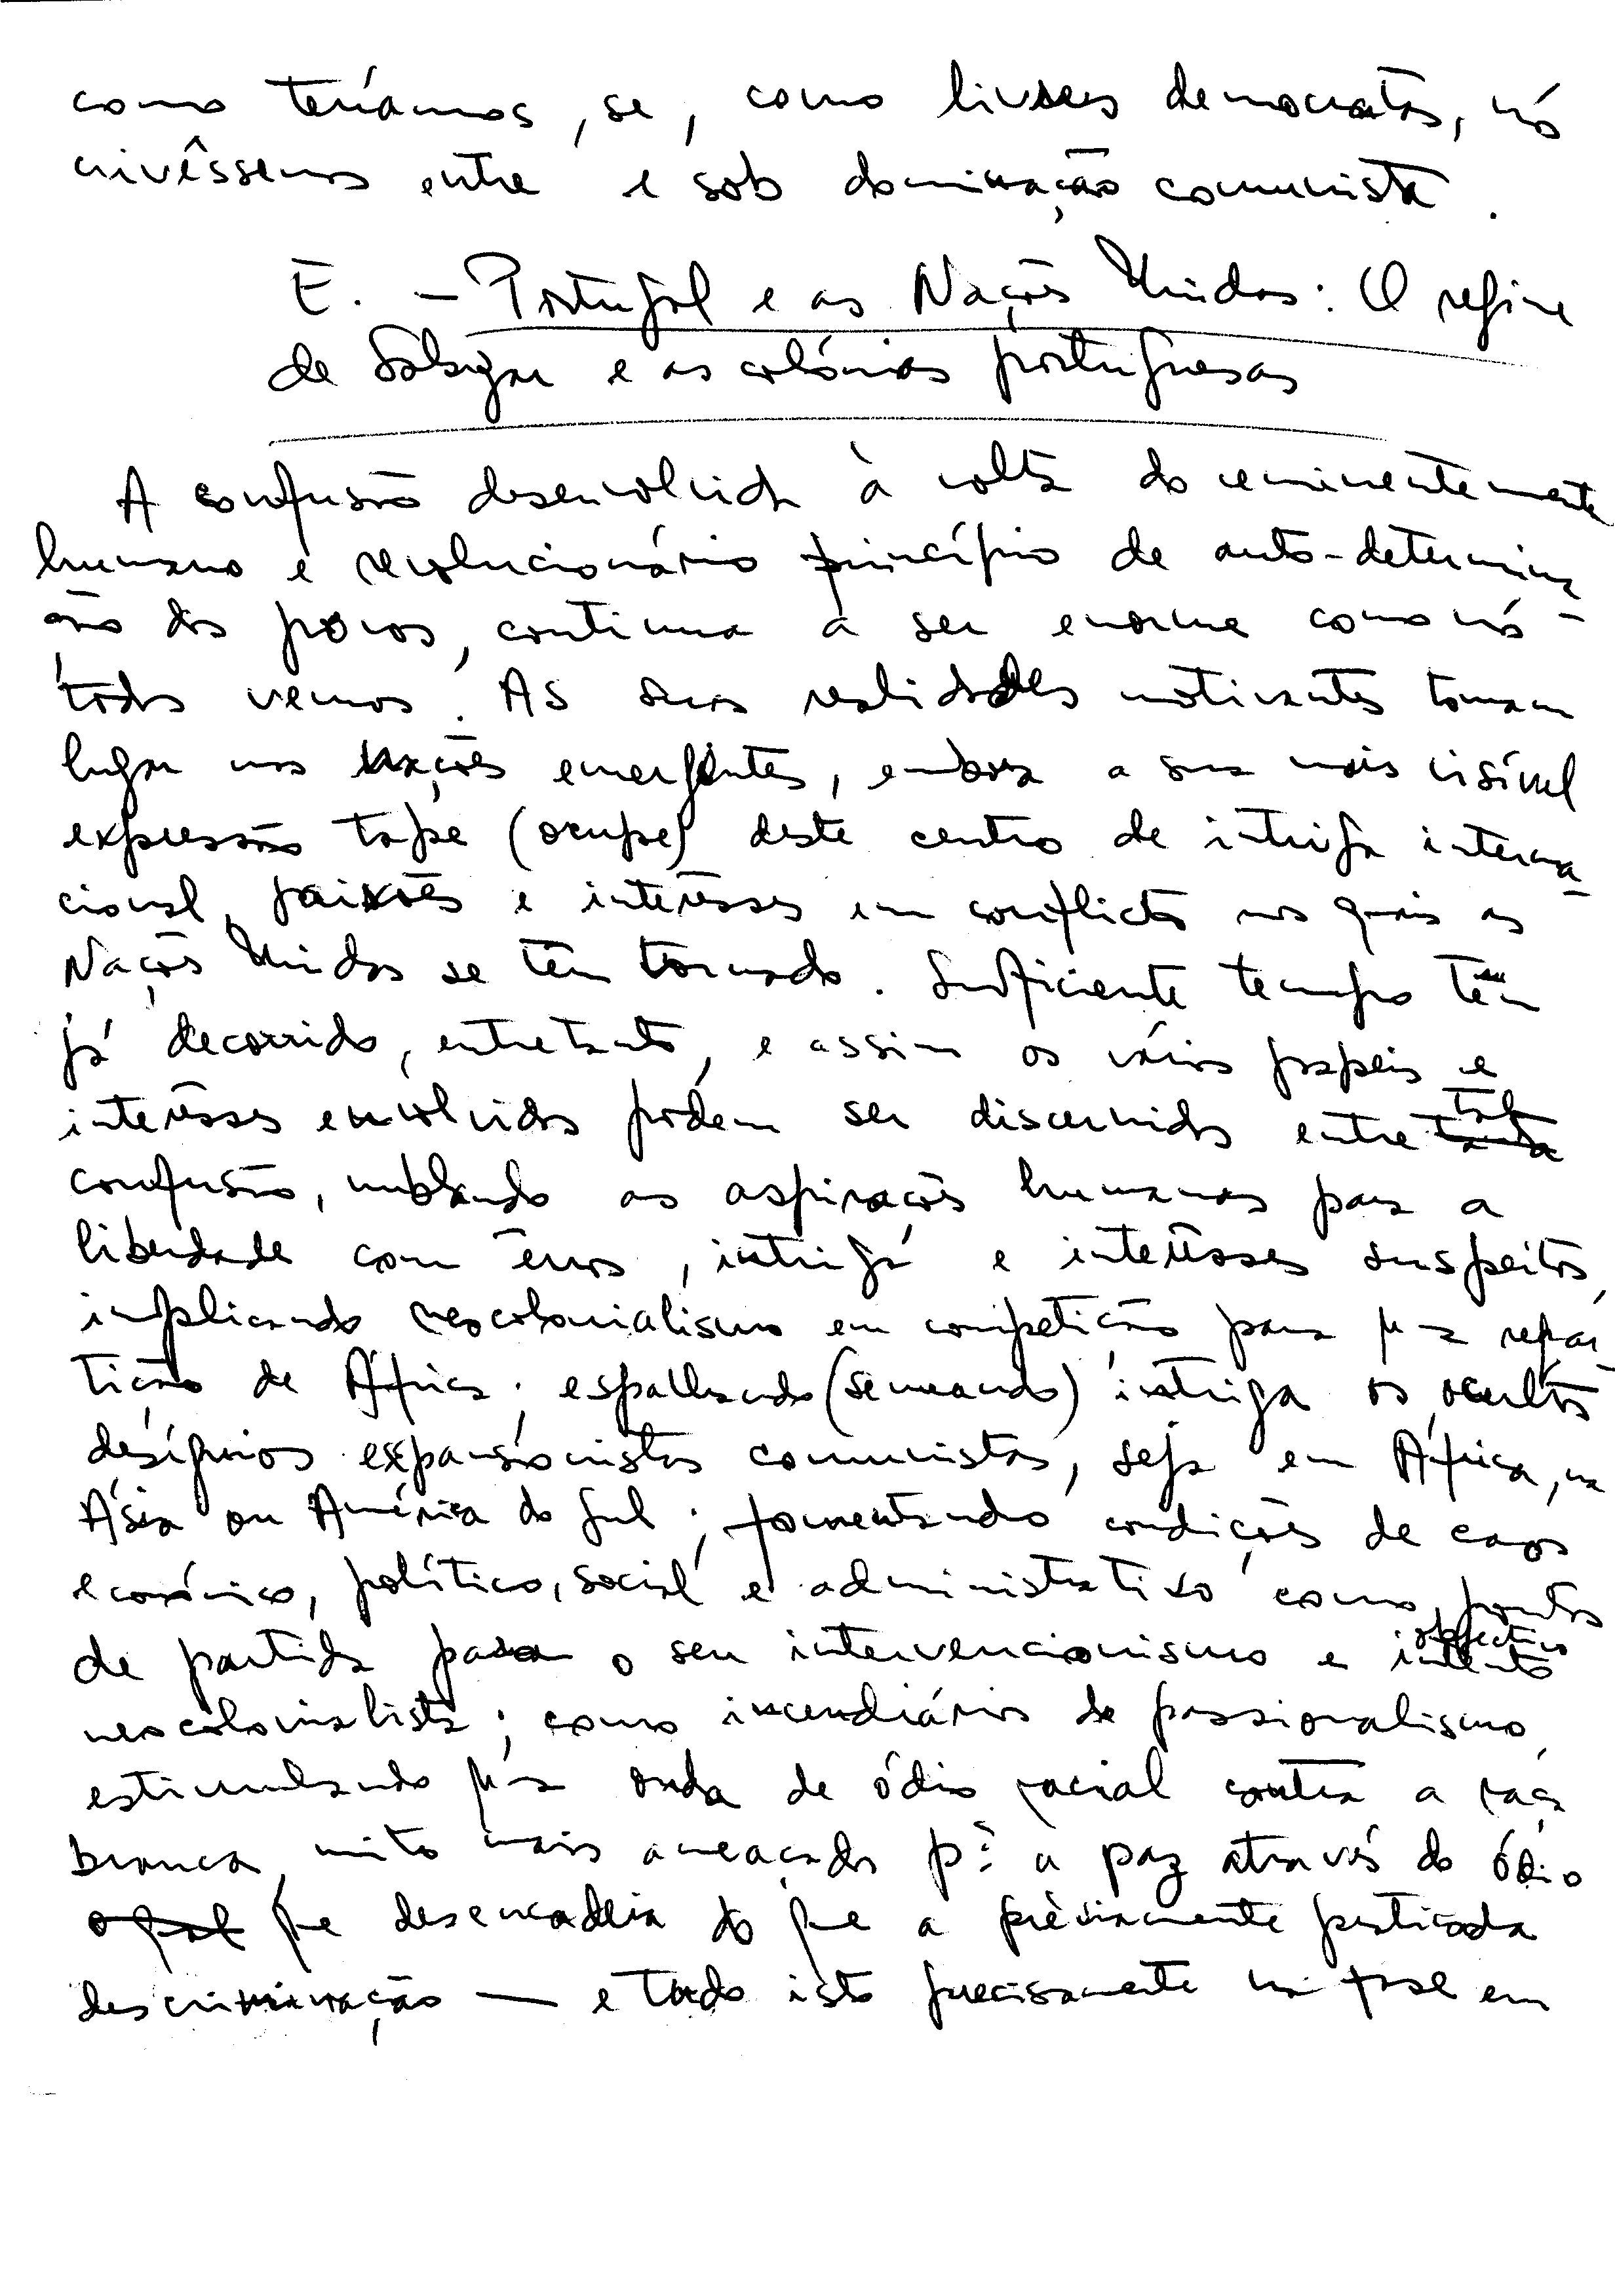 como teríamos, se, como livres democratas, nós
vivêssemos entre e sob dominação comunista.
E. - Portugal e as Nações Unidas: O regime
de Salazar e as colónias portuguesas
A confusão desenvolvida à volta do eminentemente
humano e revolucionário princípio de auto-determina
ção dos povos, continua a ser enorme como nós -
todos vemos. As suas realidades motivantes tomam
lugar nas nações emergentes, embora a sua mais visível
expressão tape (ocupe) deste centro de intriga interna-
cional, paixões e interêsses em conflicto nos quais as
Nações Unidas se têm tornado. Suficiente tempo têm
já decorrido, entretanto, e assim os vários papeis e
interêsses envolvidos pódem ser discernidos entre tal
confusão, nublando as aspirações humanas para a
liberdade com êrros, intriga e interêsses suspeitos,
implicando neocolonialismo em competição para a repar-
tição de África; espalhando (semeando) intriga os ocultos
desígnios expansionistas comunistas, seja em África, na
Ásia ou América do Sul; fomentando condições de caos
económico, político, social e administrativo como pontos
de partida para o seu intervencionismo e objectivo intento
neocolonialista; como incendiários de passionalismo
estimulando onda de ódio racial contra a raça
branca, muito mais ameaçador pª a paz através do ódio
que desencadeia do que a prèviamente praticada
descriminação — e tudo isto precisamente na fase em